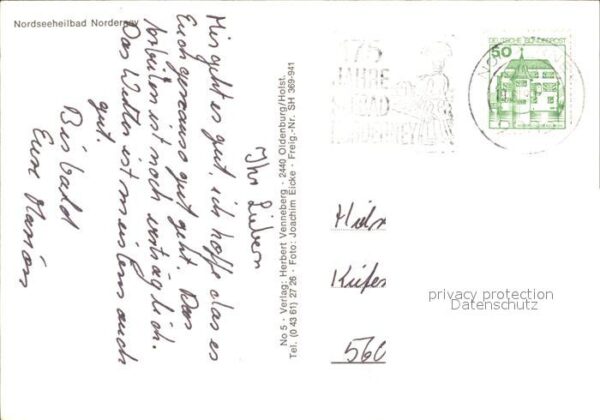 Nordseeheilbad Norderney
Ihr Lieben
Mir geht es gut ich hoffe das es
Euch genauso gut geht. Das
ist noch erträglich.
Das Wetter ist meistens auch
gut.
Bis bald
Eure
No 5 - Verlag: Herbert Venneberg - 2440 Oldenburg/Holst.
Tel. (0 43 61) 27 26 - Foto: Joachim Eicke - Freig.-Nr. SH 369-941
175
JAHRE
BAD
DEUTSCHE BUNDESPOST
50
560
privacy protection
Datenschutz